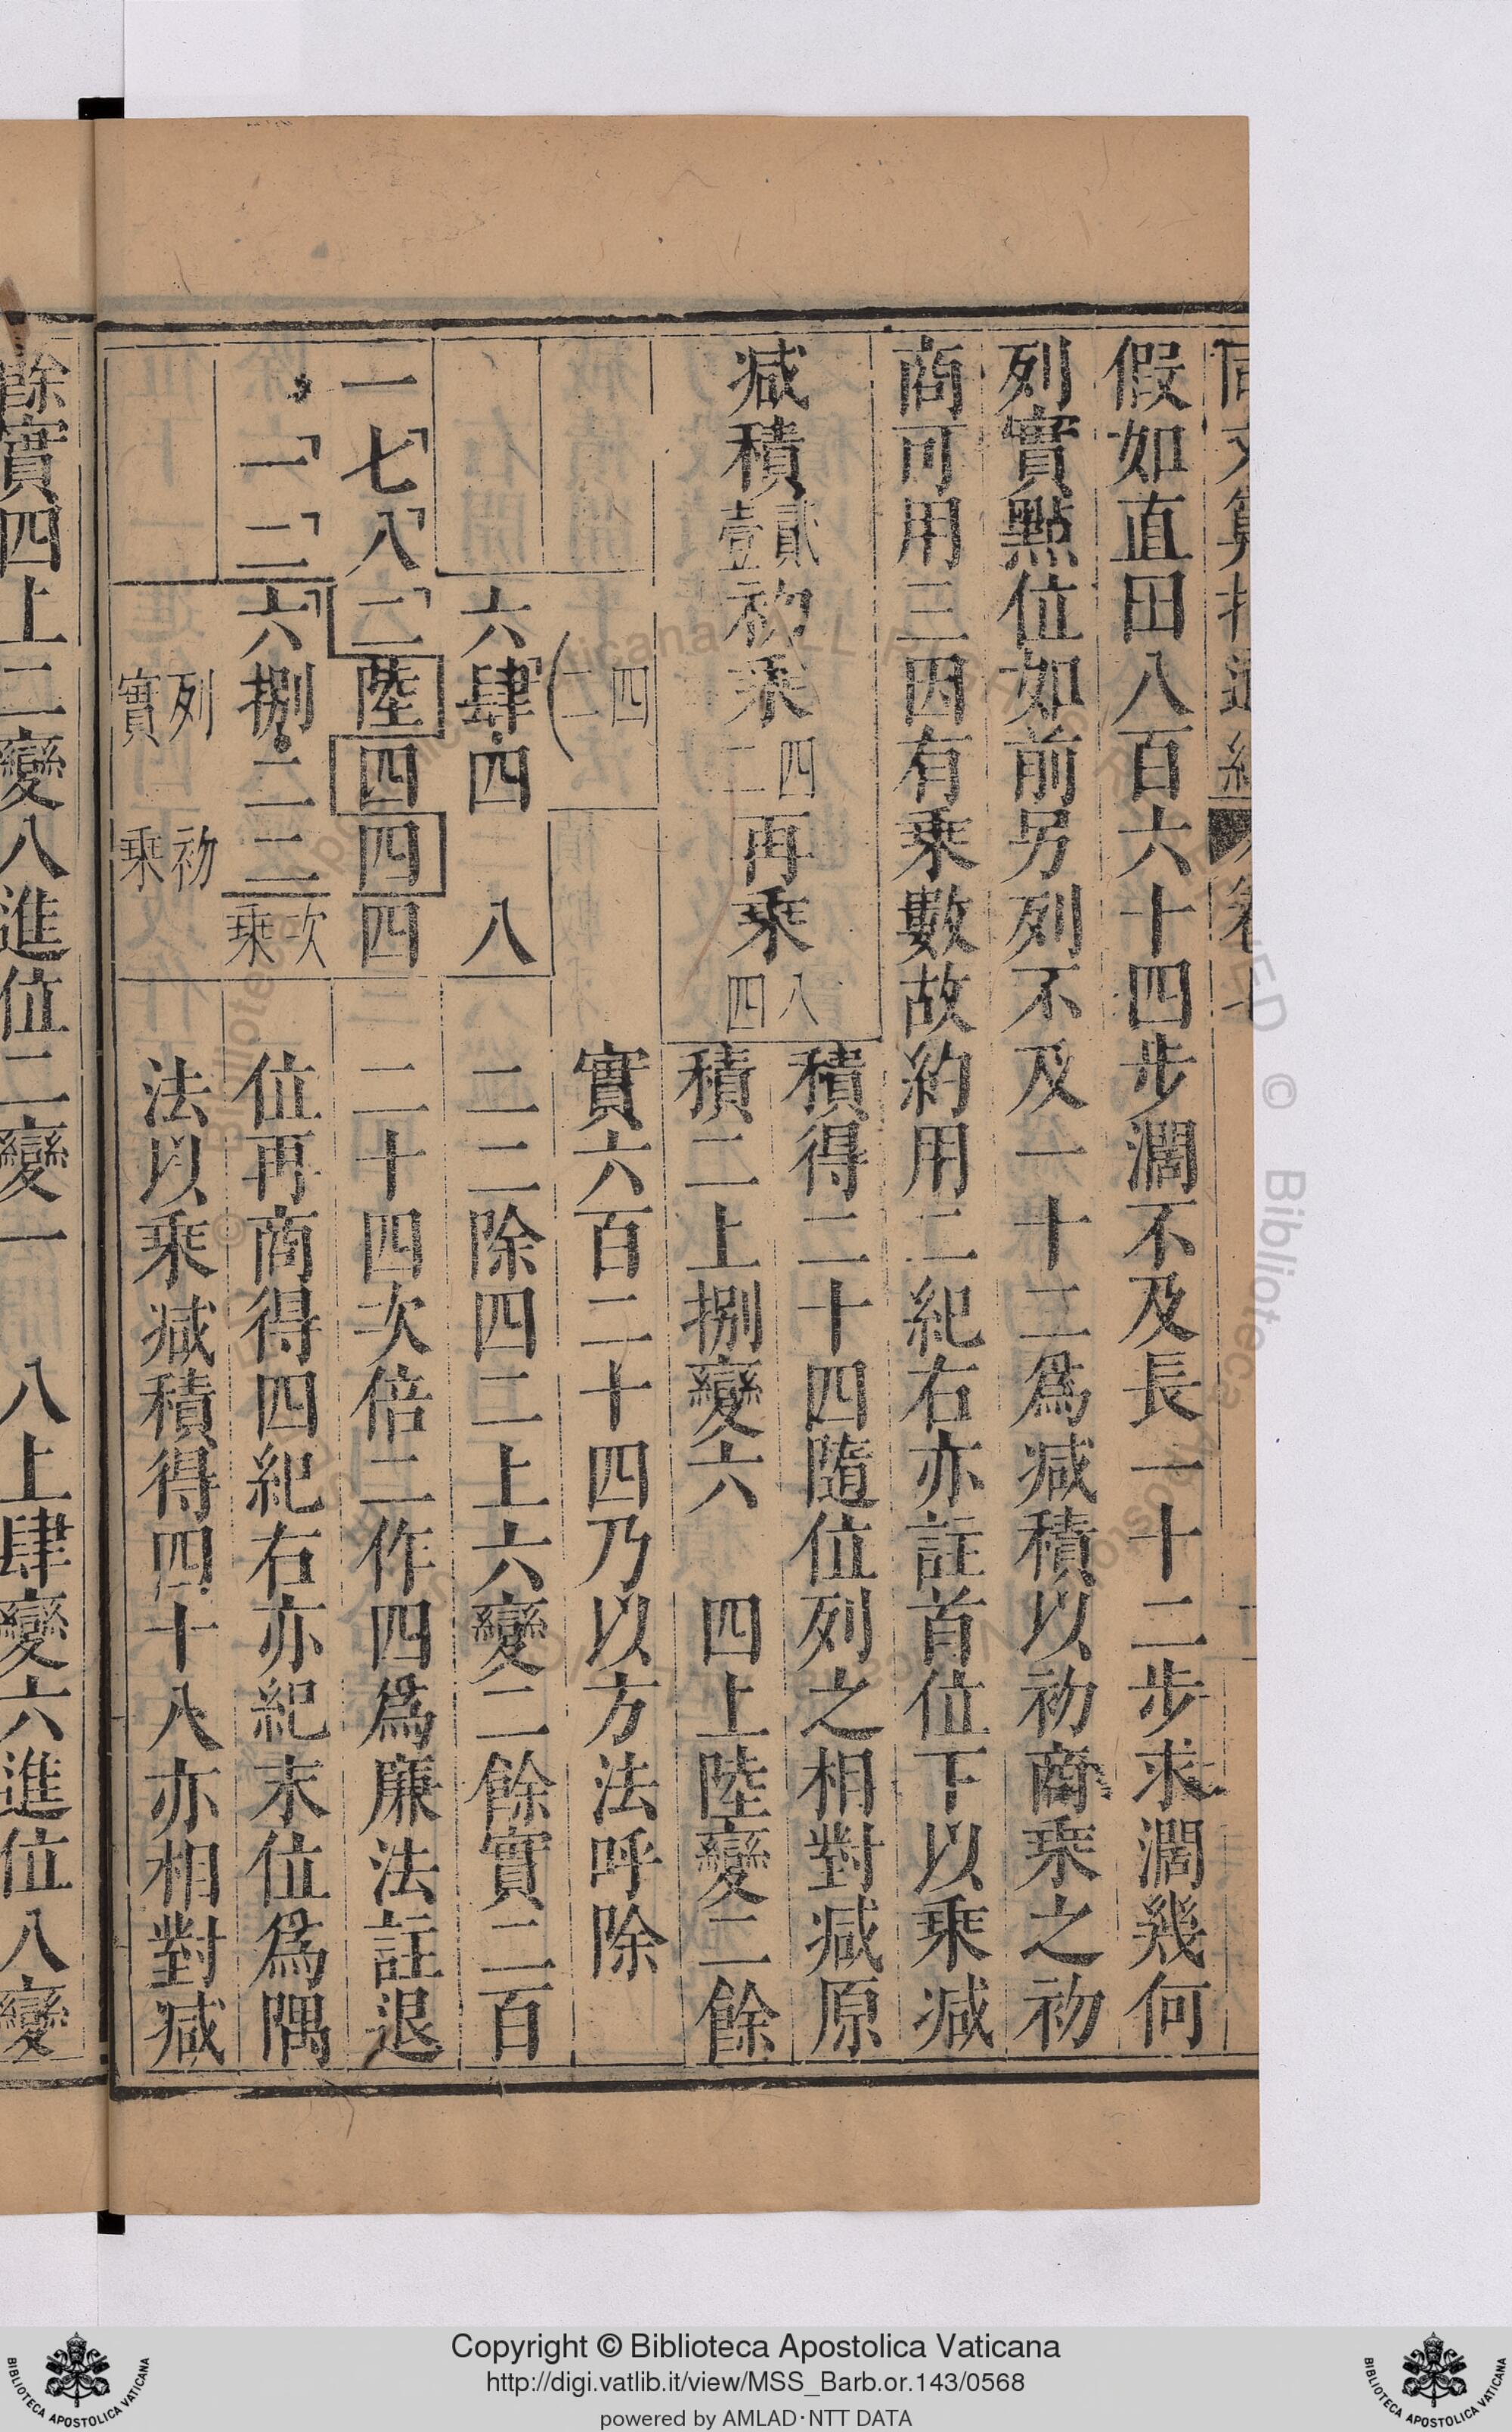 假如直田八百六十四步濶不及長一十二步求濶幾何
列實㸃位如前另列不及一十二爲减積以初商乗之初
商可用三因有乗數故約用二紀右亦註首位下以乗减
减積壹貳初乘二四再乘四八
積得二十四隨位列之相對减原
積二上捌變六　四上陸變二餘
四二
實六百二十四乃以方法呼除
六肆四　八
二二除四二上六變二餘實二百
一七八二陸四四四
二十四次倍二作四爲廉法註退
一二六捌二三次乘
位再商得四紀右亦紀末位爲隅
列實　初乘
法以乘减積得四十八亦相對减
除實四上二變八進位二變一　八上肆變六進位八變
Copyright © Biblioteca Apostolica Vaticana
http://digi.vatlib.it/view/MSS_Barb.or.143/0568
powered by AMLAD·NTT DATA
BIBLIOTECA APOSTOLICA VATICANA
BIBLIOTECA APOSTOLICA VATICANA